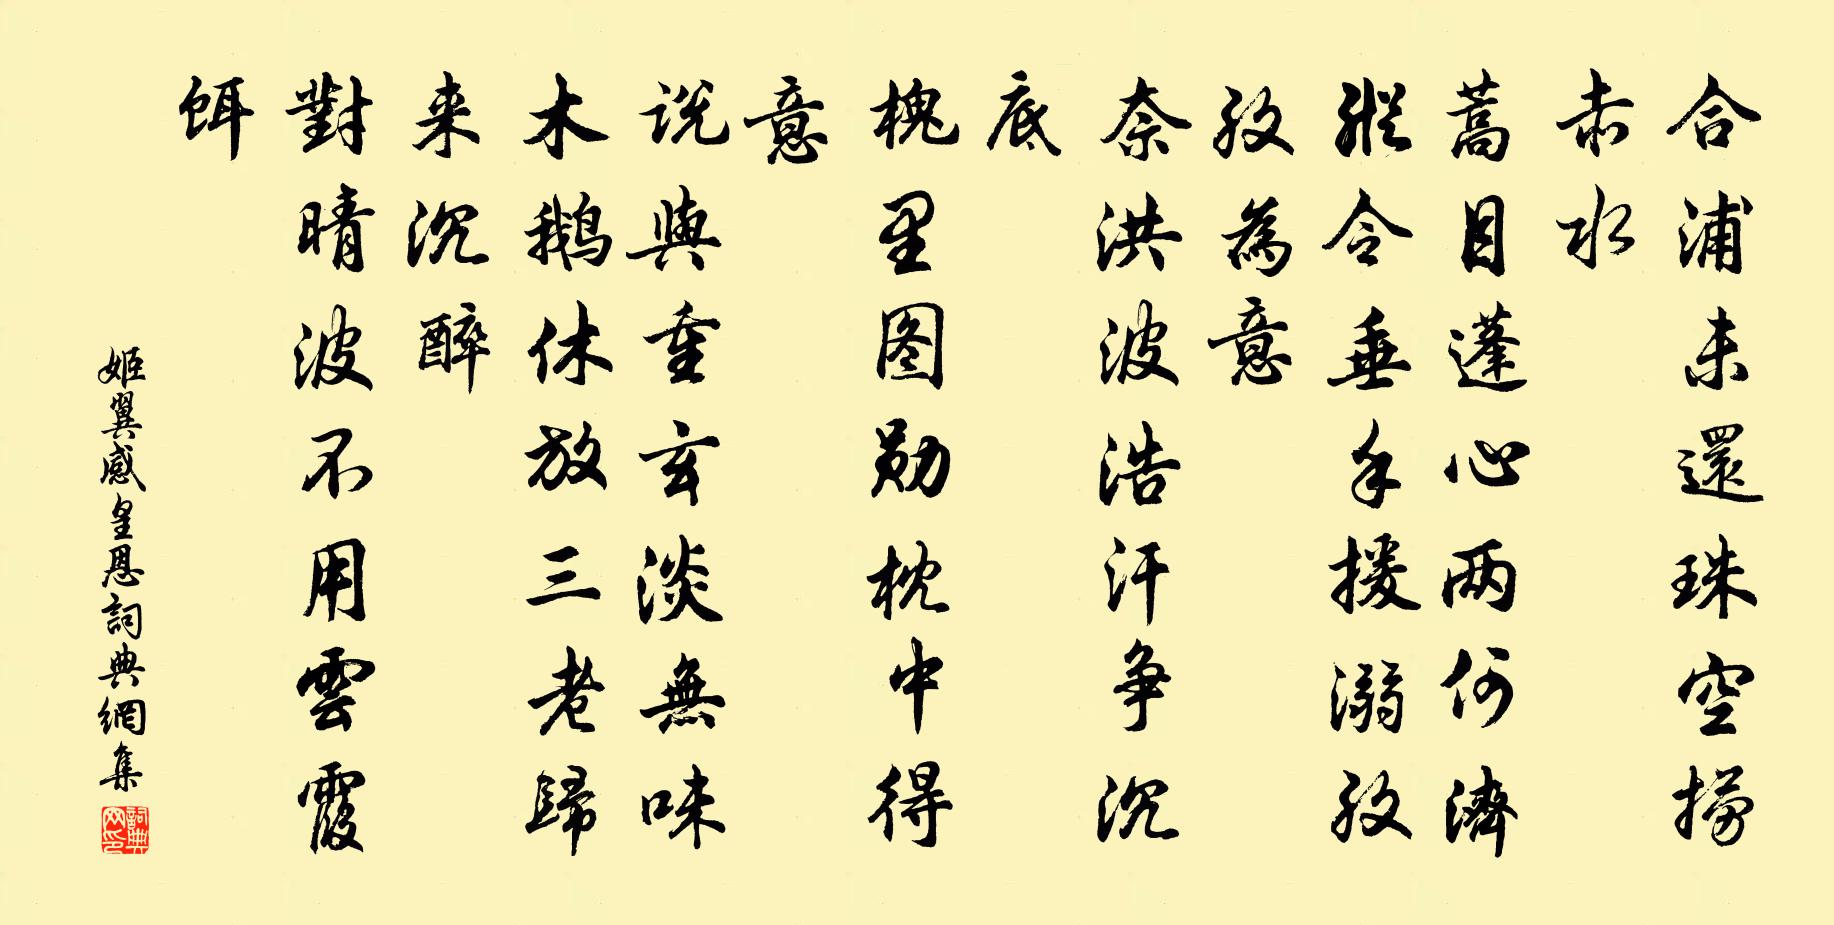 合浦未還珠空撈
赤水
蒿目蓬心兩何濟
縱令垂手援溺
效為意
奈洪波浩汗爭沉
底
槐里图勛枕中得
意
说與重玄淡無味
木鵝休放三老歸
来沉醉
對晴波不用雲霞
餌
姬翼感皇恩詞典網集
詞典网印